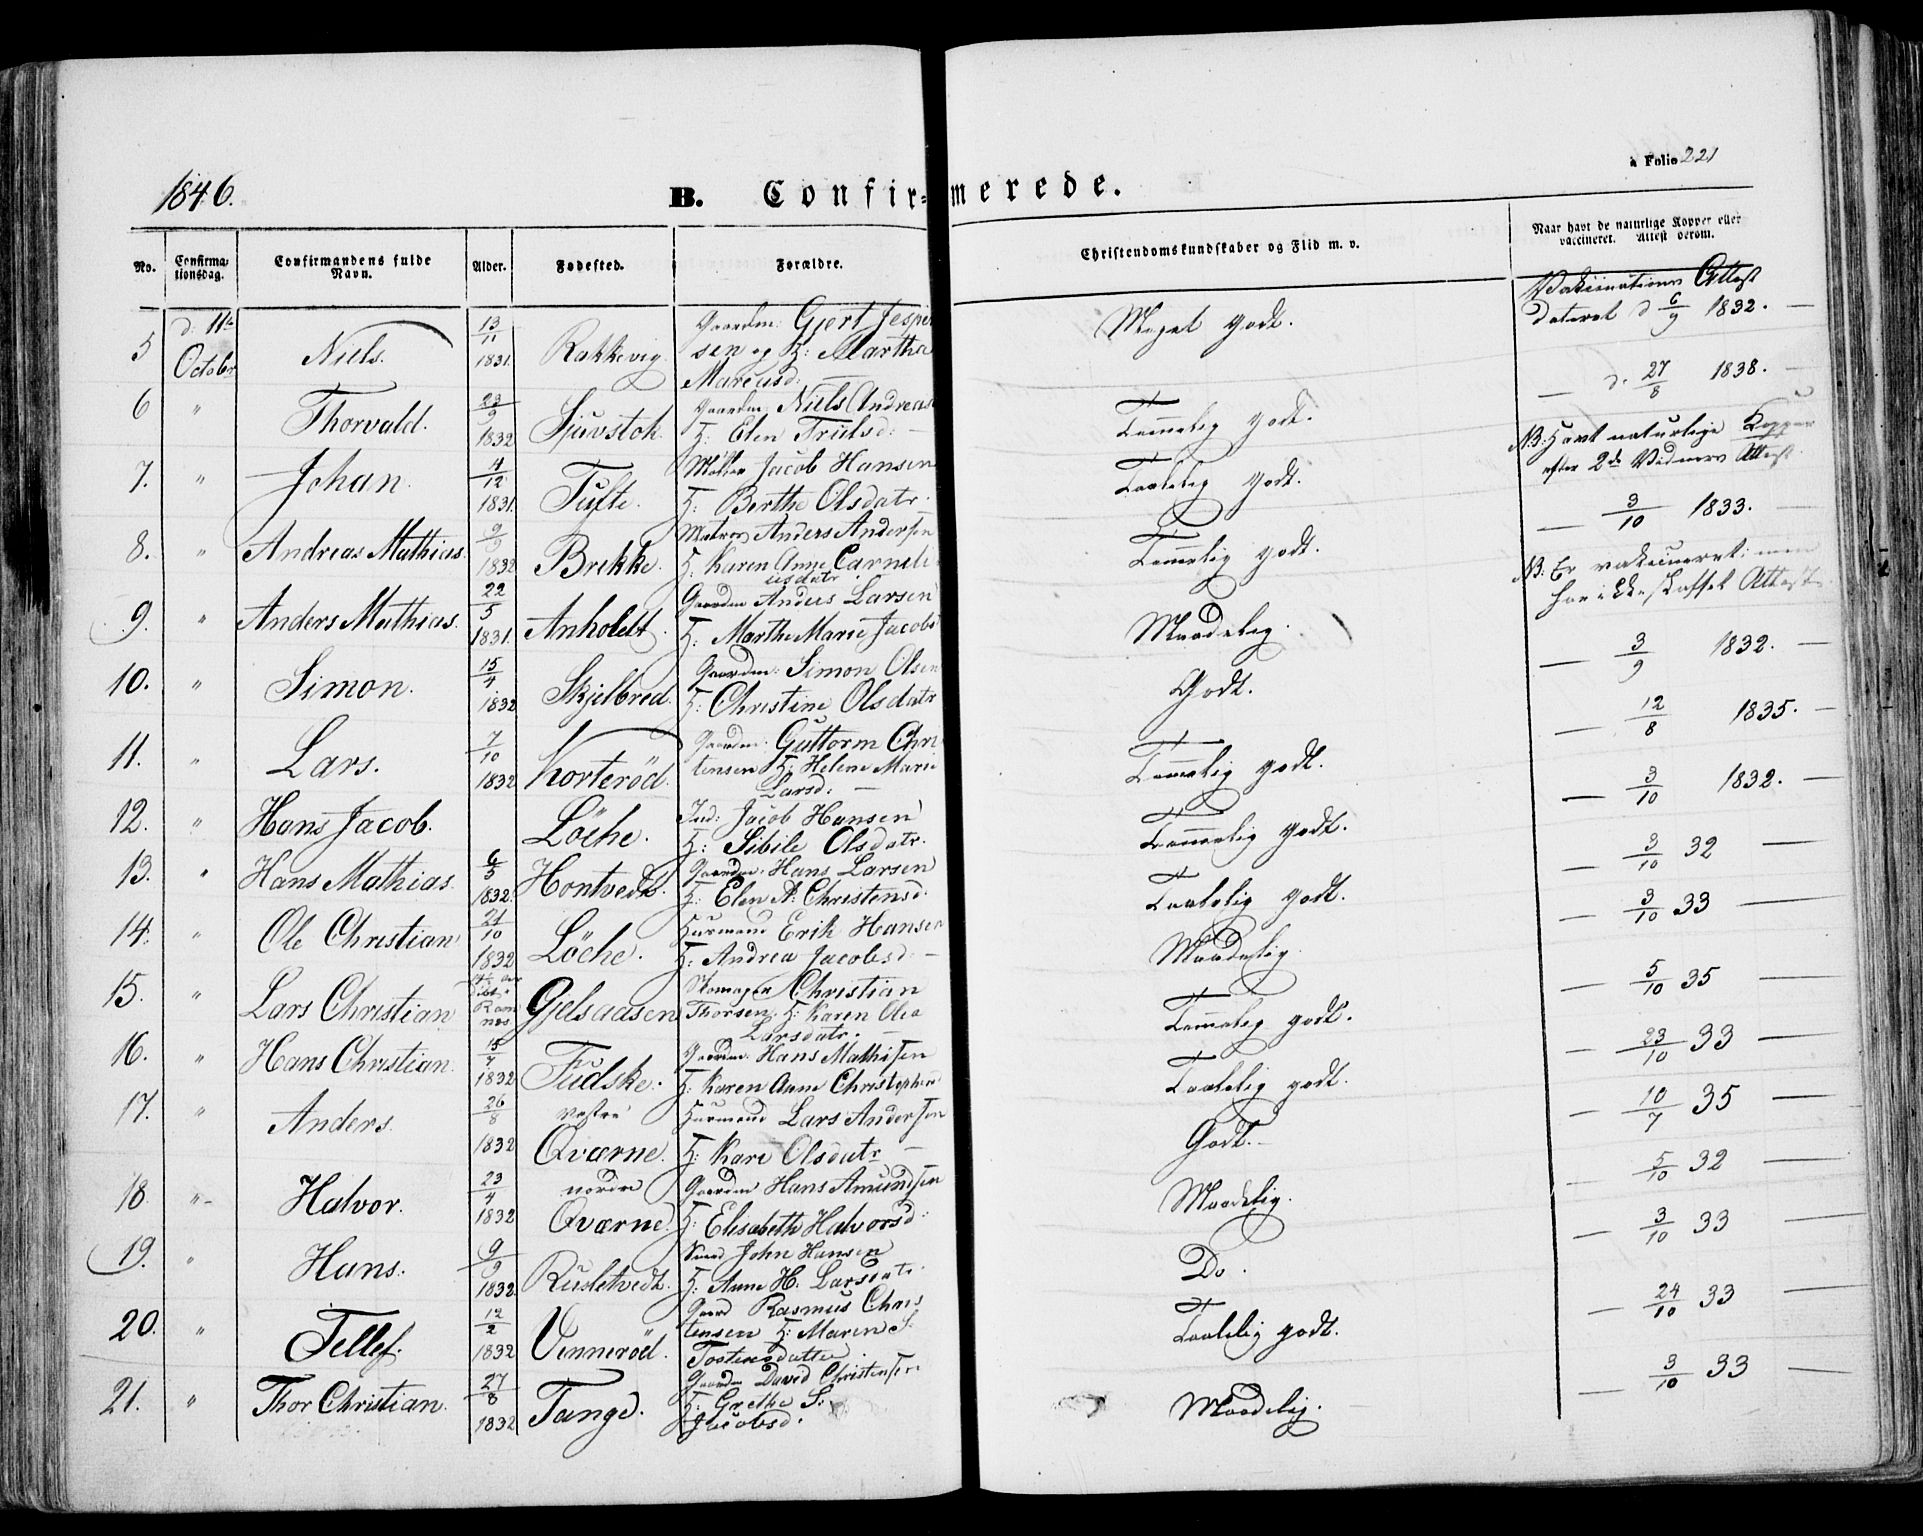 1846.
B. Confir-
merede.
a Folio 221
No.
Confirma-
tionsdag.
Confirmandens fulde
Navn.
Alder.
Fødested.
Forældre.
Christendomskundskaber og Flid m. v.
Naar havt de naturlige Kopper eller
vaccineret. Attest derom.
5 d: 11te Octobr Niels. 13/11 1831. Rakkevig. Gaardm: Gjert Jesper
sen og H: Martha
Marcusd: Meget godt. Vakcinations Attest
dateret d 6/9 1832. —
6 " Thorvald. 23/9 1832 Sjuvstok. Gaardm: Niels Andreas
H: Elen Trulsd: — Temmelig godt. — d: 27/8 1838. —
7. " Johan. 4/12 1831. Tufte. Møller Jacob Hansen
H: Berthe Olsdatr. Taalelig godt. NB: Havt naturlige Kopper
efter 2de Vidners Attest.
8. " Andreas Mathias. 9/9 1832 Brekke. Matros Anders Andersen
H: Karen Anne Corneli
usdatr Temmelig godt. — 3/10 1833. —
9. " Anders Mathias. 22/5 1831. Anholdt. Gaardm Anders Larsen
H: Marthe Marie Jacobs Maadelig. NB: Er vakcineret; men
har ikke skaffet Attest.
10. " Simon. 15/4 1832 Skjelbred. Gaardm: Simon Olsen
H: Christine Olsdatr Godt. — 3/9 1832. —
11. " Lars. 7/10 1832 Korterød. Gaardm: Guttorm Chri
stensen H: Helene Marie
Larsd: — Temmelig godt. — 12/8 1835. —
12. " Hans Jacob. Löche. Ind: Jacob Hansen
H: Sibile Olsdatr. Temmelig godt. — 3/10 1832. —
13. " Hans Mathias. 6/5 1832. Hontvedt. Gaardm: Hans Larsen
H: Elen A: Christensd: Taalelig godt. — 3/10 32 —
14. " Ole Christian 21/10 1832 Löche. Huusmand Erik Hansen
H: Andrea Jacobsd: — Maadelig. — 3/10 33 —
15. " Lars Christian Ram
næs Gjelsaasen Skomager Christian
Thorsen. H: Karen Olea
Larsdatr. — Temmelig godt. — 5/10 35 —
16. " Hans Christian. 15/7 1832 Fudske. Gaardm: Hans Mathisen
H: Karen Anne Christophersd Taalelig godt. — 23/10 33 —
17. " Anders. 26/8 1832 vestre
Qværne. Huusmand Lars Andersen
H: Kari Olsdatr — Godt. — 10/7 35 —
18. " Halvor. 23/4 1832 nordre
Qværne. Gaardm Hans Amundsen
H: Elisabeth Halvorsd: Maadelig. — 5/10 32 —
19. " Hans. 9/9 1832 Rusletvedt. John Hansen
H: Anne H: Larsdatr. Do. — 3/10 33 —
20. " Tellef. 12/2 1832 Vennerød. Gaard Rasmus Chris
tensen H: Maren S:
Tostensdatter Taalelig godt. — 24/10 33 —
21. " Thor Christian. 27/8 1832 Tange. Gaardm David Christensen
H: Grethe S:
Jacobsd: Maadelig. — 3/10 33 —